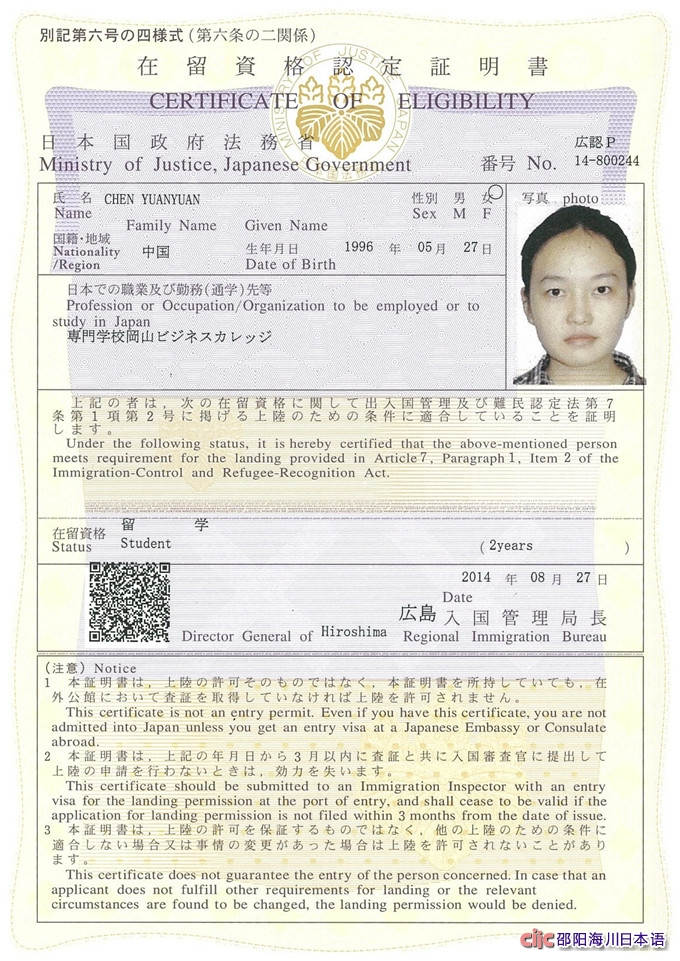 別記第六号の四様式(第六条の二関係)
在留資格認定証明書
CERTIFICATE OF ELIGIBILITY
日本国政府法務省
広認P
Ministry of Justice, Japanese Government
番号 No. 14-800244
氏名 CHEN YUANYUAN
性別 男 女
写真 photo
Name
Sex M F
Family Name Given Name
国籍・地域
Nationality
/Region
中国
生年月日 1996 年 05 月 27 日
Date of Birth
日本での職業及び勤務(通学)先等
Profession or Occupation/Organization to be employed or to
study in Japan
専門学校岡山ビジネスカレッジ
上記の者は,次の在留資格に関して出入国管理及び難民認定法第7
条第1項第2号に掲げる上陸のための条件に適合していることを証明
します。
Under the following status, it is hereby certified that the above-mentioned person
meets requirement for the landing provided in Article 7, Paragraph 1, Item 2 of the
Immigration-Control and Refugee-Recognition Act.
在留資格 留学
Status Student
(2years )
2014 年 08 月 27 日
Date
広島 入国管理局長
Director General of Hiroshima Regional Immigration Bureau
(注意) Notice
1 本証明書は,上陸の許可そのものではなく,本証明書を所持していても,在
外公館において査証を取得していなければ上陸を許可されません。
This certificate is not an entry permit. Even if you have this certificate, you are not
admitted into Japan unless you get an entry visa at a Japanese Embassy or Consulate
abroad.
2 本証明書は,上記の年月日から3月以内に査証と共に入国審査官に提出して
上陸の申請を行わないときは,効力を失います。
This certificate should be submitted to an Immigration Inspector with an entry
visa for the landing permission at the port of entry, and shall cease to be valid if the
application for landing permission is not filed within 3 months from the date of issue.
3 本証明書は,上陸の許可を保証するものではなく,他の上陸のための条件に
適合しない場合又は事情の変更があった場合は上陸を許可されないことがあり
ます。
This certificate does not guarantee the entry of the person concerned. In case that an
applicant does not fulfill other requirements for landing or the relevant
circumstances are found to be changed, the landing permission would be denied.
clic 邵阳海川日本语